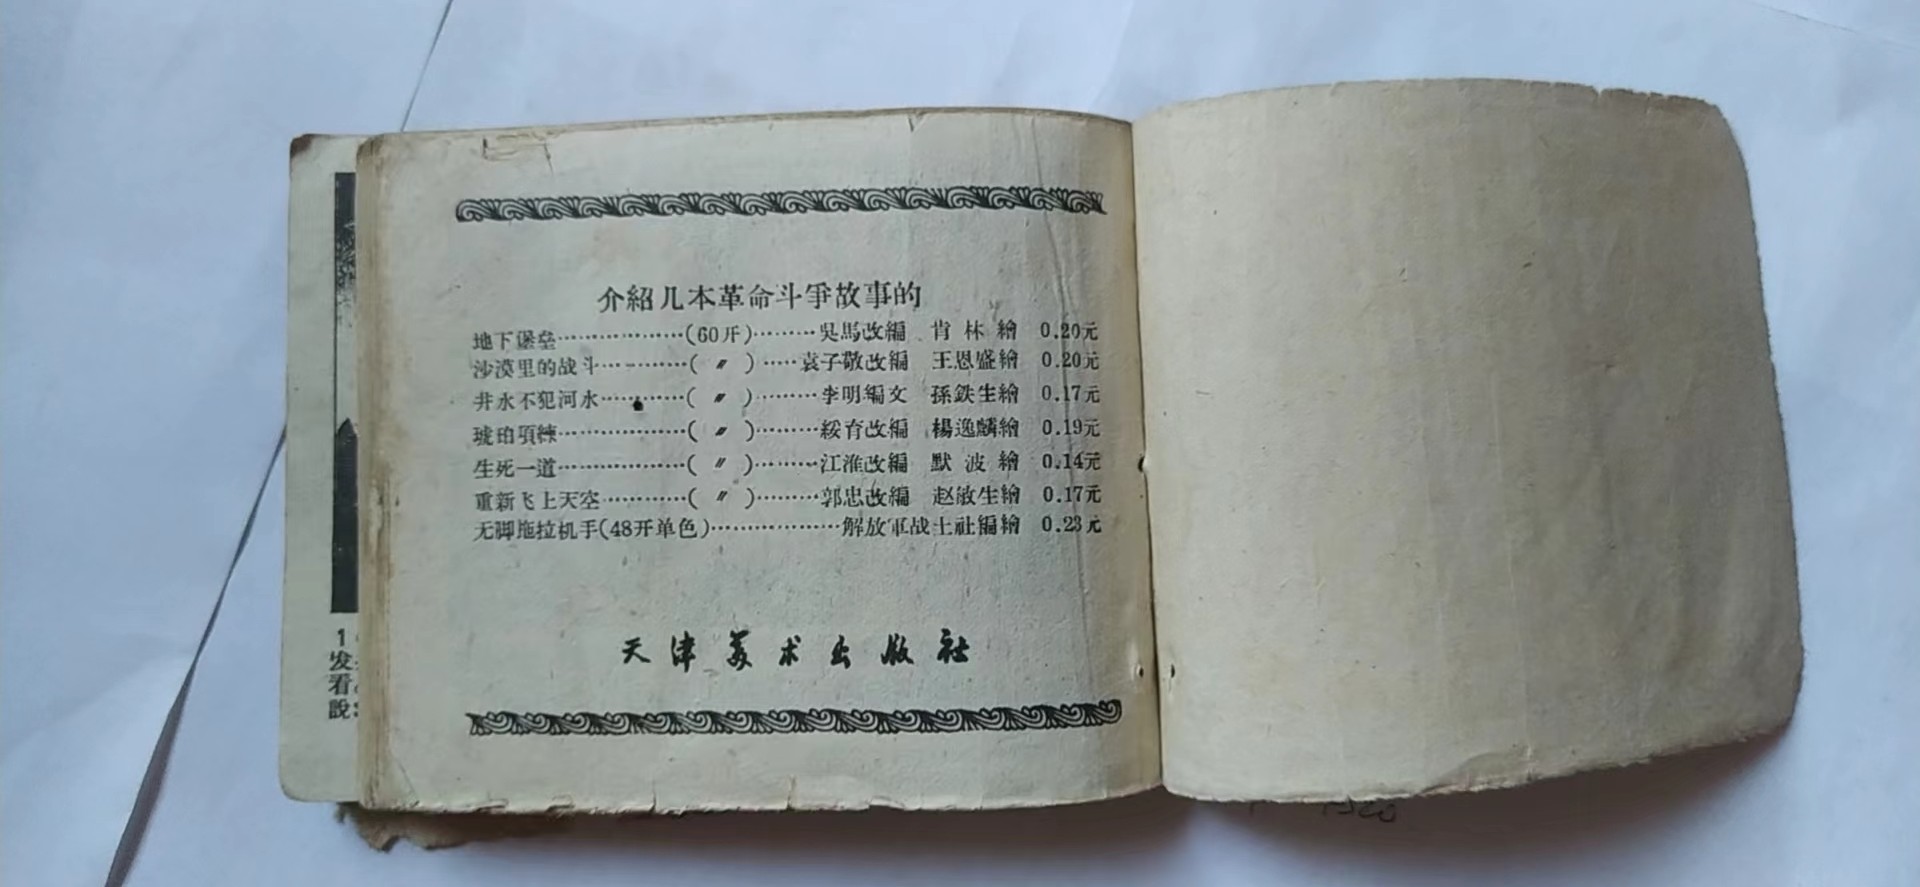 介紹几本革命斗爭故事的
地下堡垒………………(60开)………吳馬改編 肯林繪 0.20元
沙漠里的战斗…………( 〃 )……袁子敬改編 王恩盛繪 0.20元
井水不犯河水…………( 〃 )………李明編文 孫鉄生繪 0.17元
琥珀項鍊………………( 〃 )………綏育改編 楊逸麟繪 0.19元
生死一道………………( 〃 )………江淮改編 默波繪 0.14元
重新飞上天空…………( 〃 )………郭忠改編 赵敏生繪 0.17元
无脚拖拉机手(48开单色)………………解放軍战士社編繪 0.23元
天津美术出版社
1
发
看
說